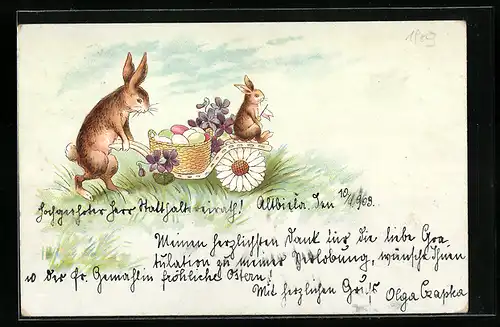 1909
Hochgeehrter Herr Statthaltereirath! Altbiela. Den 10/4 909.
Meinen herzlichsten Dank für die liebe Gra-
tulation zu meiner Verlobung, wünsche Ihnen
u der Fr. Gemahlin fröhliche Ostern!
Mit herzlichen Gruß Olga Czapka